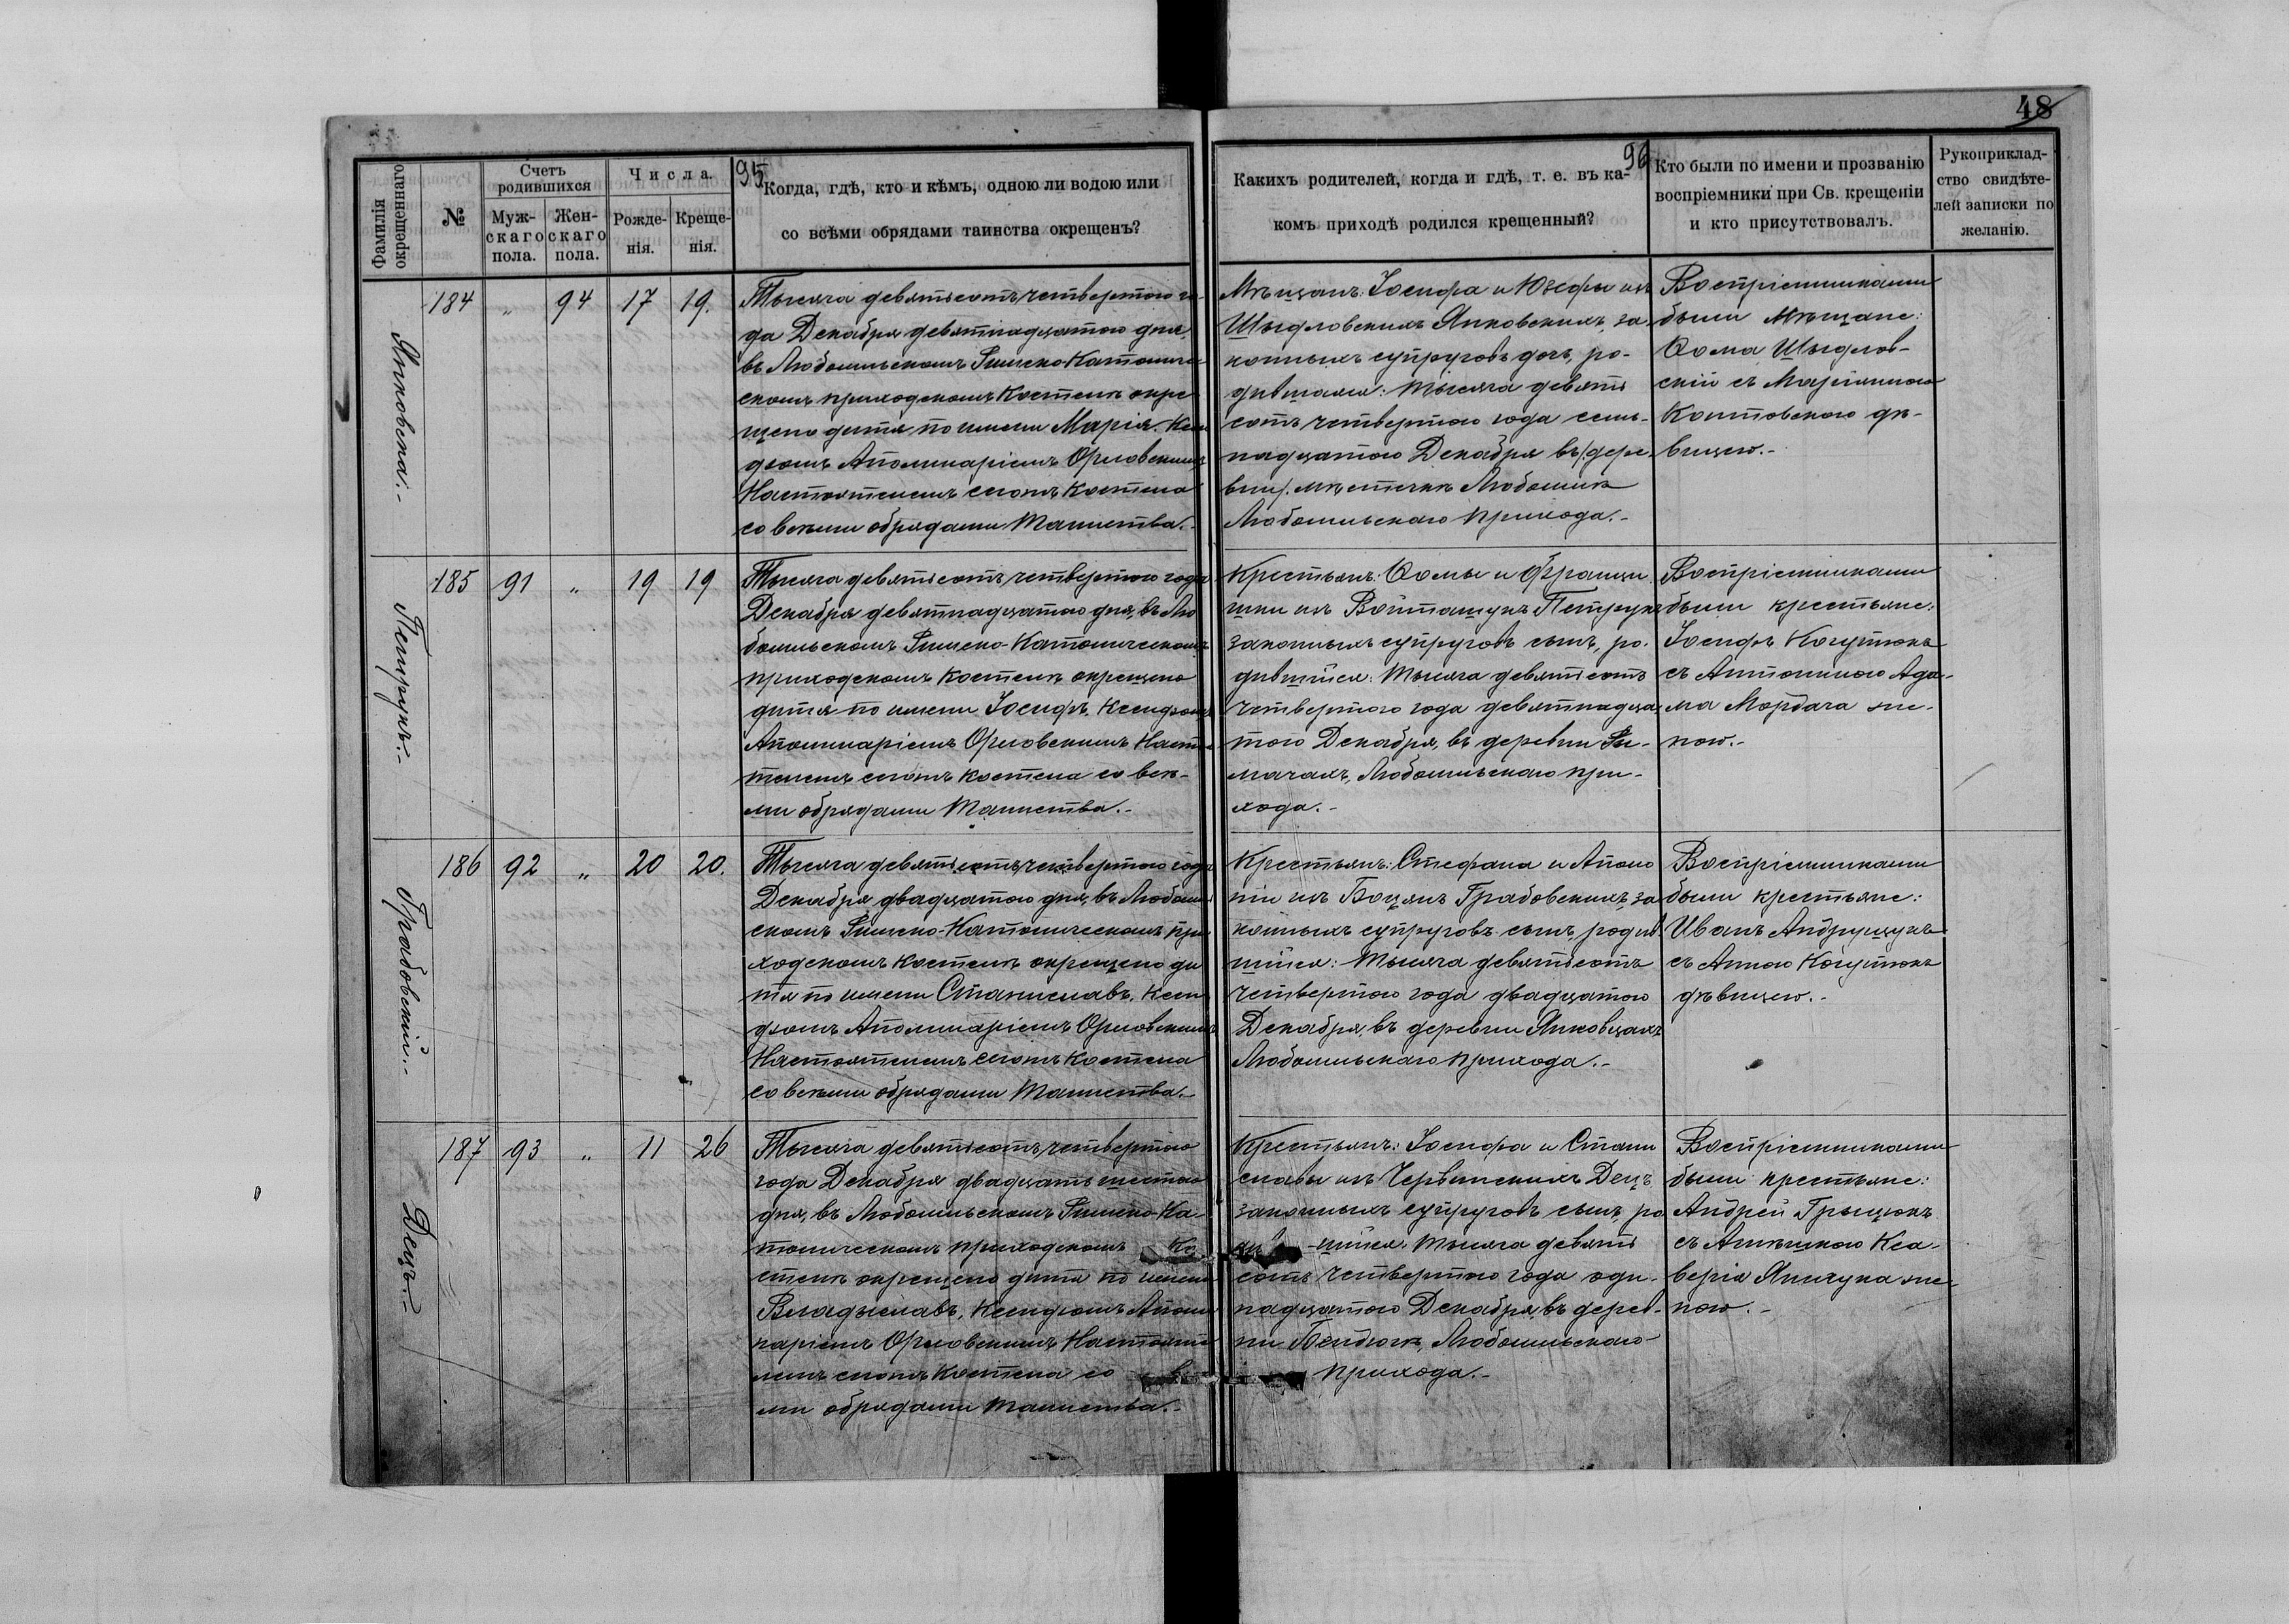 48
95
96
Фамилія окрещеннаго
№
Счетъ родившихся
Муж-
скаго
пола.
Жен-
скаго
пола.
Числа.
Рожде-
нія.
Креще-
нія.
Когда, гдѣ, кто и кѣмъ, одною ли водою или
со всѣми обрядами таинства окрещенъ?
Какихъ родителей, когда и гдѣ, т. е. въ ка-
комъ приходѣ родился крещенный?
Кто были по имени и прозванію
воспріемники при Св. крещеніи
и кто присутствовалъ.
Рукоприклад-
ство свидѣте-
лей записки по
желанію.
Янковска.-
184 " 94 17 19.
Тысяча девятьсотъ четвертого го-
да Декабря девятнадцатого дня,
въ Любомльскомъ Римско Католиче-
скомъ приходскомъ костелѣ окре
щено дитя по имени Марія. Ксен
дзомъ Аполинаріемъ Орловскимъ
Настоятелемъ сего костела
со всѣми обрядами Таинства.-
Мѣщанъ: Іосифа и Юзефы изъ
Шыдловскихъ Янковскихъ, за
конныхъ супруговъ дочь, ро-
дившаяся: тысяча девять
сотъ четвертого года семь-
надцатого Декабря въ /:дере-
вни:/ мѣстечкѣ Любомлѣ
Любомльскаго прихода.-
Воспріемниками
были Мѣщане:
Ѳома Шыдлов-
скій съ Маріянною
Коитовского дѣ-
вицею.-
Петрукъ.-
185 91 " 19 19
Тысяча девятьсотъ четвертого года
Декабря девятнадцатого дня, въ Лю
бомльскомъ Римско-Католическомъ
приходскомъ костелѣ окрещено
дитя по имени Іосифъ. Ксендзомъ
Аполинаріемъ Орловскимъ Настоя-
телемъ сего костела со всѣ-
ми обрядами Таинства.-
Крестьянъ: Ѳомы и Францы
шки изъ Войташукъ Петрукъ
законныхъ супруговъ сынъ, ро-
дившійся: тысяча девятьсотъ
четвертого года девятнадца-
того Декабря, въ деревни Ри-
мачахъ, Любомльскаго при-
хода.-
Воспріемниками
были крестьяне:
Іосифъ Когутюкъ
съ Антониною Ада-
ма Мордача же-
ною.-
Грабовскій.-
186 92 " 20 20.
Тысяча девятьсотъ четвертого года
Декабря двадцатого дня, въ Любомль
скомъ Римско-Католическомъ при
ходскомъ костелѣ окрещено ди
тя по имени Станиславъ. Ксен
дзомъ Аполинаріемъ Орловскимъ
Настоятелемъ сего костела
со всѣми обрядами Таинства.-
Крестьянъ: Стефана и Аполо
ніи изъ Боцянъ Грабовскихъ, за
конныхъ супруговъ сынъ, родив
шійся: тысяча девятьсотъ
четвертого года двадцатого
Декабря, въ деревни Янковцахъ
Любомльскаго прихода.-
Воспріемниками
были крестьяне:
Иванъ Андрущукъ
съ Анною Когутюкъ
дѣвицею.-
Децъ.-
187 93 " 11 26
Тысяча девятьсотъ четвертого
года Декабря двадцать шестого
дня, въ Любомльскомъ Римско-Ка-
толическомъ приходскомъ ко
стелѣ окрещено дитя по имени
Владыславъ. Ксендзомъ Аполи
наріемъ Орловскимъ Настояте
лемъ сего костела со всѣ
ми обрядами таинства.-
Крестьянъ: Іосифа и Стани
славы изъ Червинскихъ Децъ
законныхъ супруговъ сынъ, ро
див шійся: тысяча девять
сотъ четвертого года оди-
надцатого Декабря, въ дерев-
ни Любомльскаго
прихода.-
Воспріемниками
были крестьяне:
Андрей Грыцюкъ
съ Агнѣшкою Кса-
верія Янчука же-
ною.-